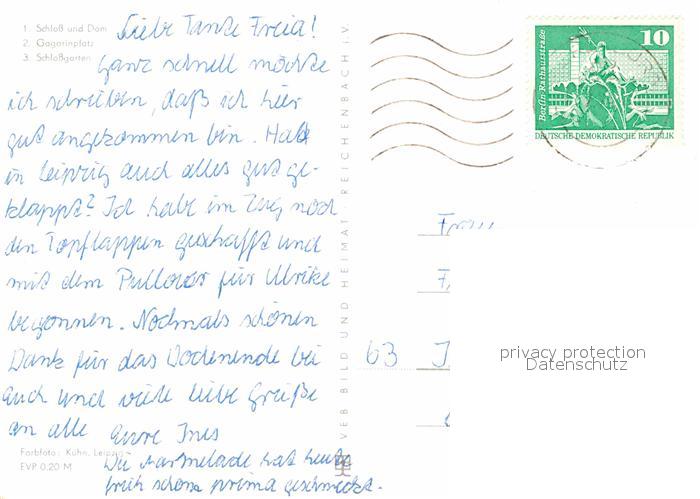 1. Schloß und Dom
2. Gagarinplatz
3. Schloßgarten
Liebe Tante Freia!
Ganz schnell möchte
ich schreiben, daß ich hier
gut angekommen bin. Hat
in Leipzig auch alles gut ge-
klappt? Ich habe im Zug noch
den Topflappen geschafft und
mit dem Pullover für Ulrike
begonnen. Nochmals schönen
Dank für das Wochenende bei
Euch und viele liebe Grüße
an alle Eure Ines
Die Marmelade hat heute
früh schon prima geschmeckt.
Farbfoto: Kühn, Leipzig
EVP 0.20 M
VEB BILD UND HEIMAT REICHENBACH i.V.
Berlin-Rathausstraße
10
DEUTSCHE DEMOKRATISCHE REPUBLIK
63
privacy protection
Datenschutz